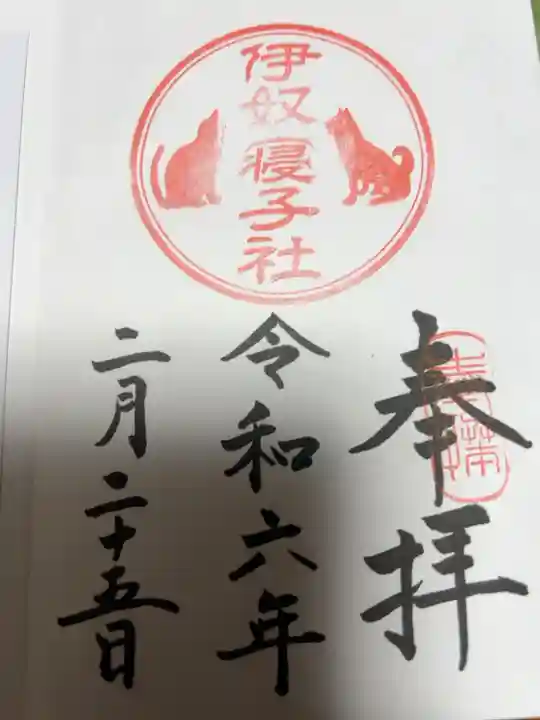 伊奴寝子社
奉拝
令和六年
二月二十五日